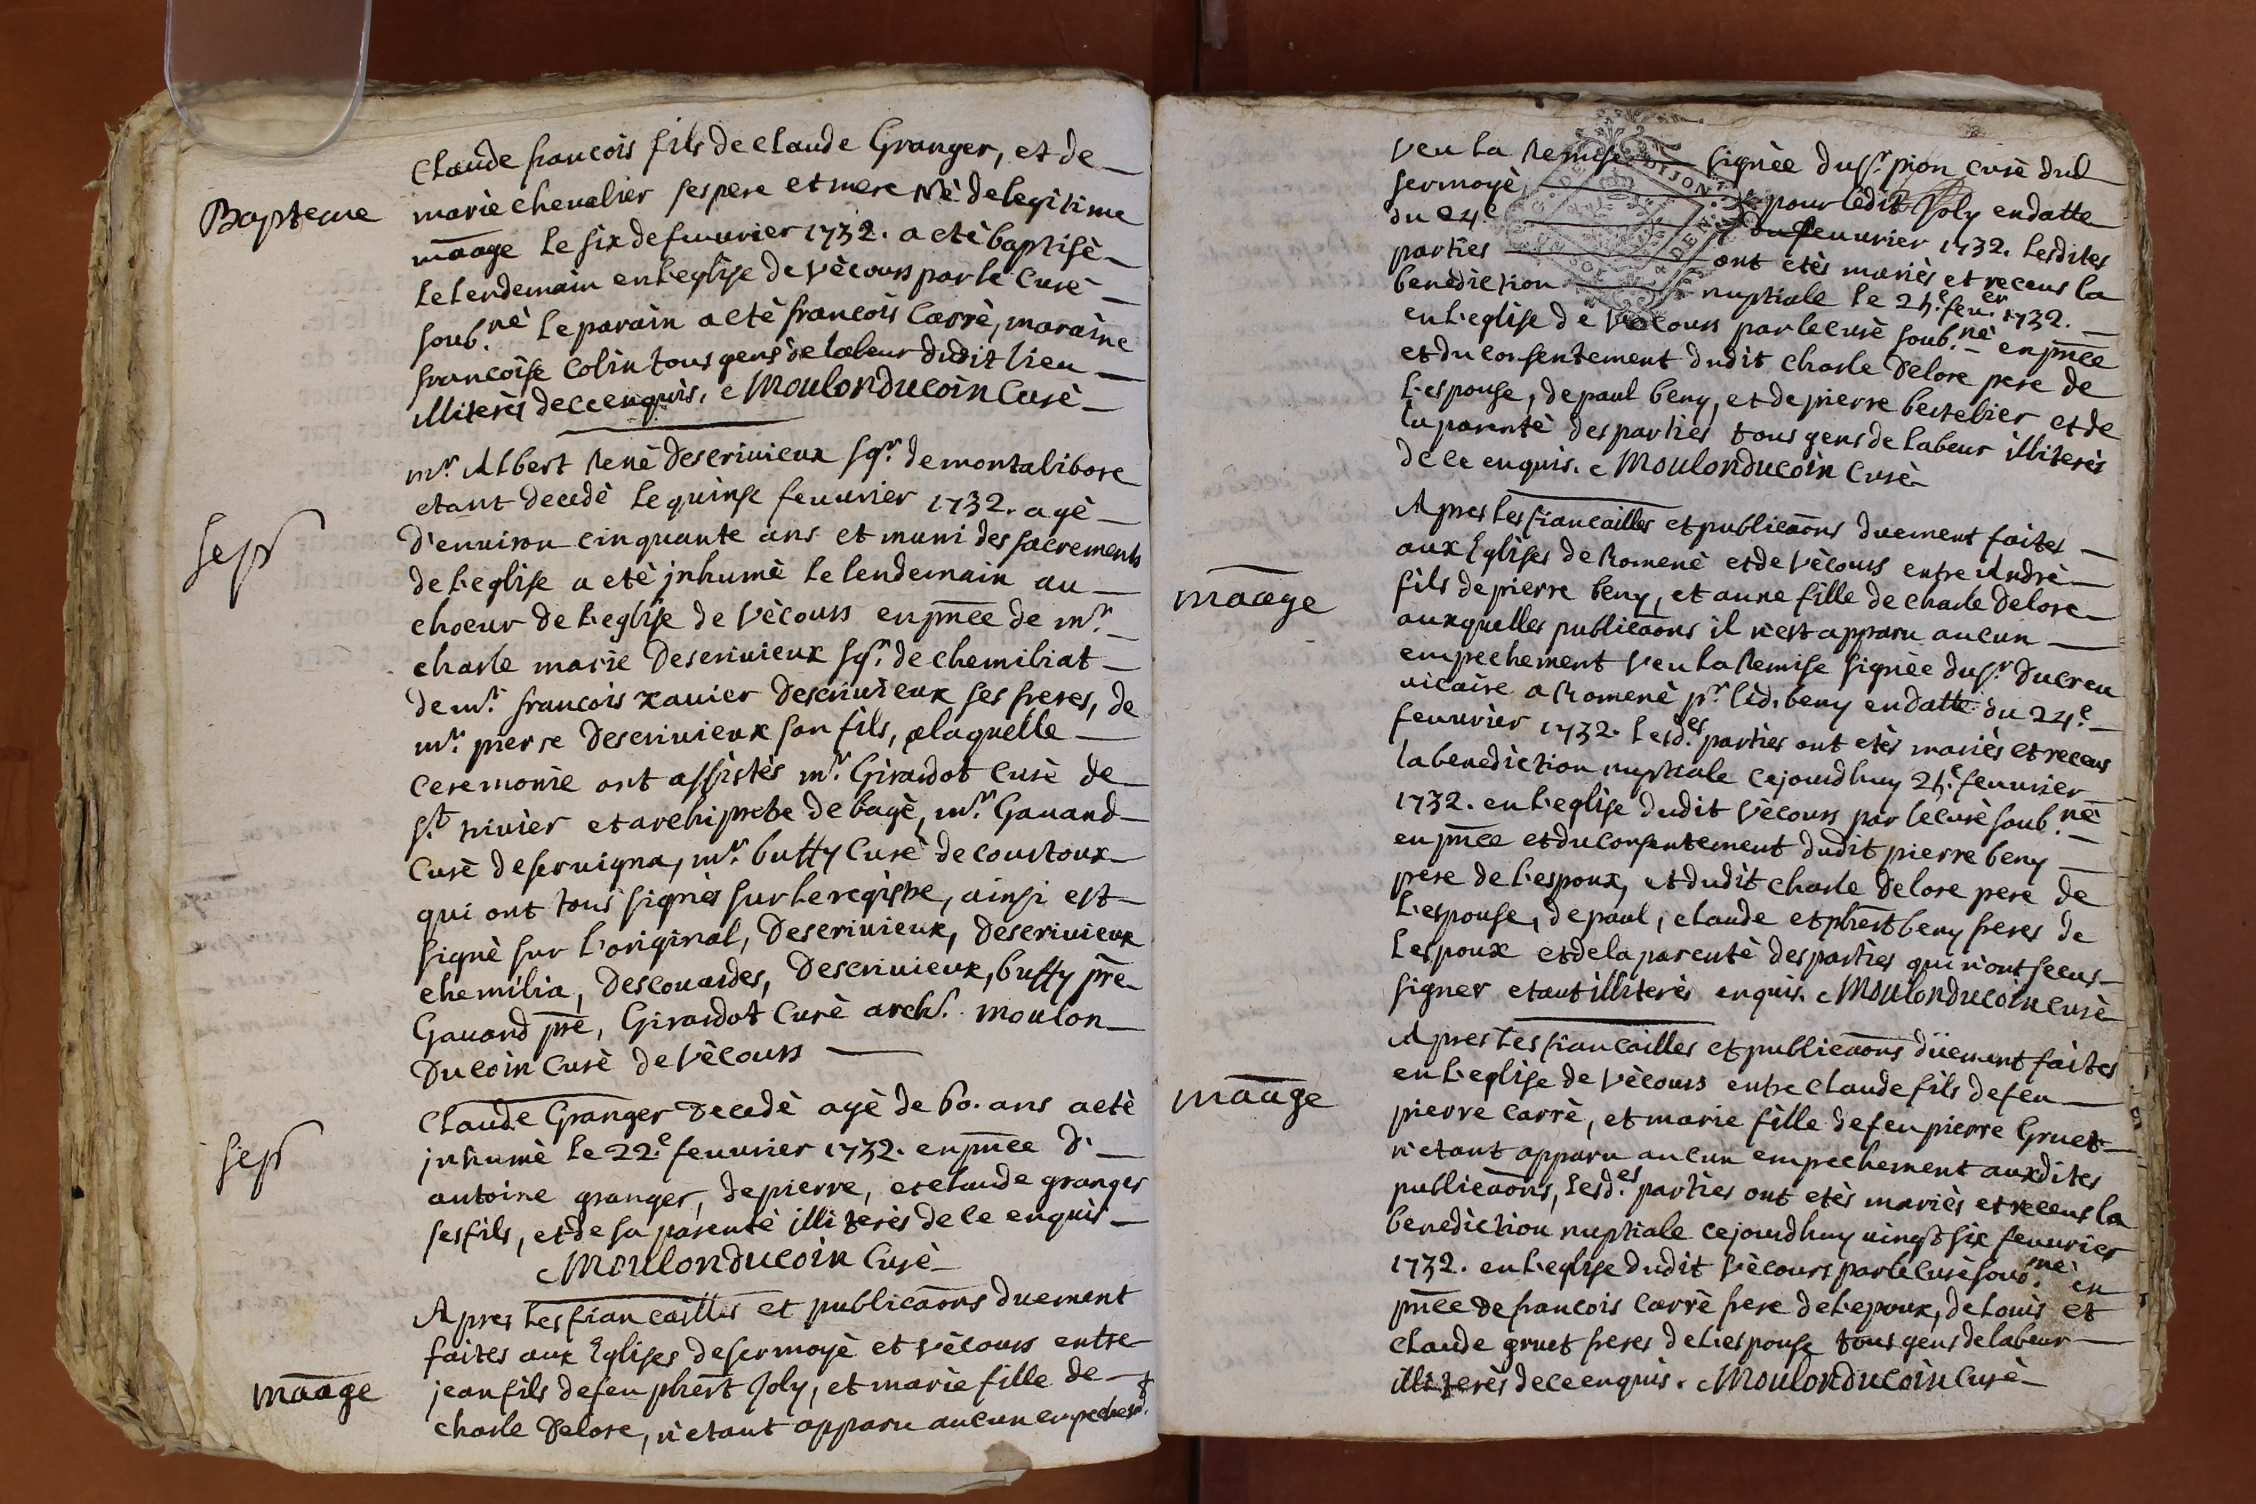 Claude francois fils de claude Granger, et de
Bapteme
marie chevalier ses pere et mere Nè de legitime
maage le six de feuurier 1732. a etè baptisè
le lendemain en l'eglise de vècours par le Curè
soub.né le parain a etè francois Carrè, maraine
francoise Colin tous gens de labeur dudit lieu
illiterès de ce enquis, Moulonducoin Curè
mr. Albert Renè Descriuieux sgr. de montalibore
etant decedè le quinse feuurier 1732. agè
Sepr
d'enuiron cinquante ans et muni des sacrements
de l'eglise a etè jnhumè le lendemain au
choeur de l'eglise de Vècours en pn̄ce de mr.
charle marie Descriuieux sgr. de chemiliat
de mr. francois xauier Descriuieux ses freres, de
mr. pierre Descriuieux son fils, a laquelle
ceremonie ont assistès mr. Girardot Curè de
st. niuier et archiprebtre de bagè, mr. Gauand
Curè de seruigna, mr. buffy Curè de Courtoux
qui ont tous signès sur le registre, ainsi est
signè sur l'original, Descriuieux, Descriuieux
chemilia, Descouardes, Descriuieux, buffy p̄re
Gauand p̄re, Girardot Curè arch. moulon
Ducoin Curè de Vècours
Claude Granger Decedè agè de 60. ans a etè
Sepr
jnhumè le 22.e feuurier 1732. en pn̄ce d'
antoine granger, de pierre, et claude granger
ses fils, et de sa parentè illiterès de ce enquis
Moulonducoin Curè
Apres les fiancailles et publicāons duement
faites aux Eglises de sermoyè et vècours entre
maage
jean fils de feu phbert Joly, et marie fille de
charle Delore, n'etant apparu aucun empechemt.
veu la Remise signèe du sr. pion curè dud
sermoyè pour ledit Joly en datte
du 24.e du feuurier 1732. lesdites
parties ont etès mariès et receus la
benediction nuptiale le 25.e feu.er 1732.
en l'eglise de Vecours par le curè soub.nè en pn̄ce
et du consentement dudit charle Delore pere de
l'espouse, de paul beny, et de pierre bertelier et de
la parentè des parties tous gens de labeur illiterès
de ce enquis. Moulonducoin Curè
Apres les fiancailles et publicāons duement faites
aux Eglises de Romenè et de Vècours entre Andrè
maage
fils de pierre beny, et anne fille de charle Delore
auxquelles publicāons il n'est apparu aucun
empechement veu la Remise signèe du sr. Ducreu
vicaire a Romenè pr. led. beny en datte du 24.e
feuurier 1732. lesd.es parties ont etès mariès et receus
la benediction nuptiale cejourdhuy 25.e feuurier
1732. en l'eglise dudit Vècours par le curè soub.nè
en pn̄ce et du consentement dudit pierre beny
pere de l'espoux, et dudit charle Delore pere de
l'espouse, de paul, claude et phbert beny freres de
lespoux et de la parentè des parties qui n'ont sceus
signer etant illiterès enquis. Moulonducoin curè
Apres les fiancailles et publicāons düement faites
en l'eglise de Vècours entre claude fils de feu
maage
pierre Carrè, et marie fille de feu pierre Gruet
n'etant apparu aucun empechement auxdites
publicāons, lesd.es parties ont etès mariès et receus la
benediction nuptiale cejourdhuy vingt six feuurier
1732. en l'eglise dudit Vècours par le Curè soub.nè en
pn̄ce de francois Carrè frere de l'epoux, de Louis et
claude gruet freres de l'espouse tous gens de labeur
illiterès de ce enquis. Moulonducoin Curè